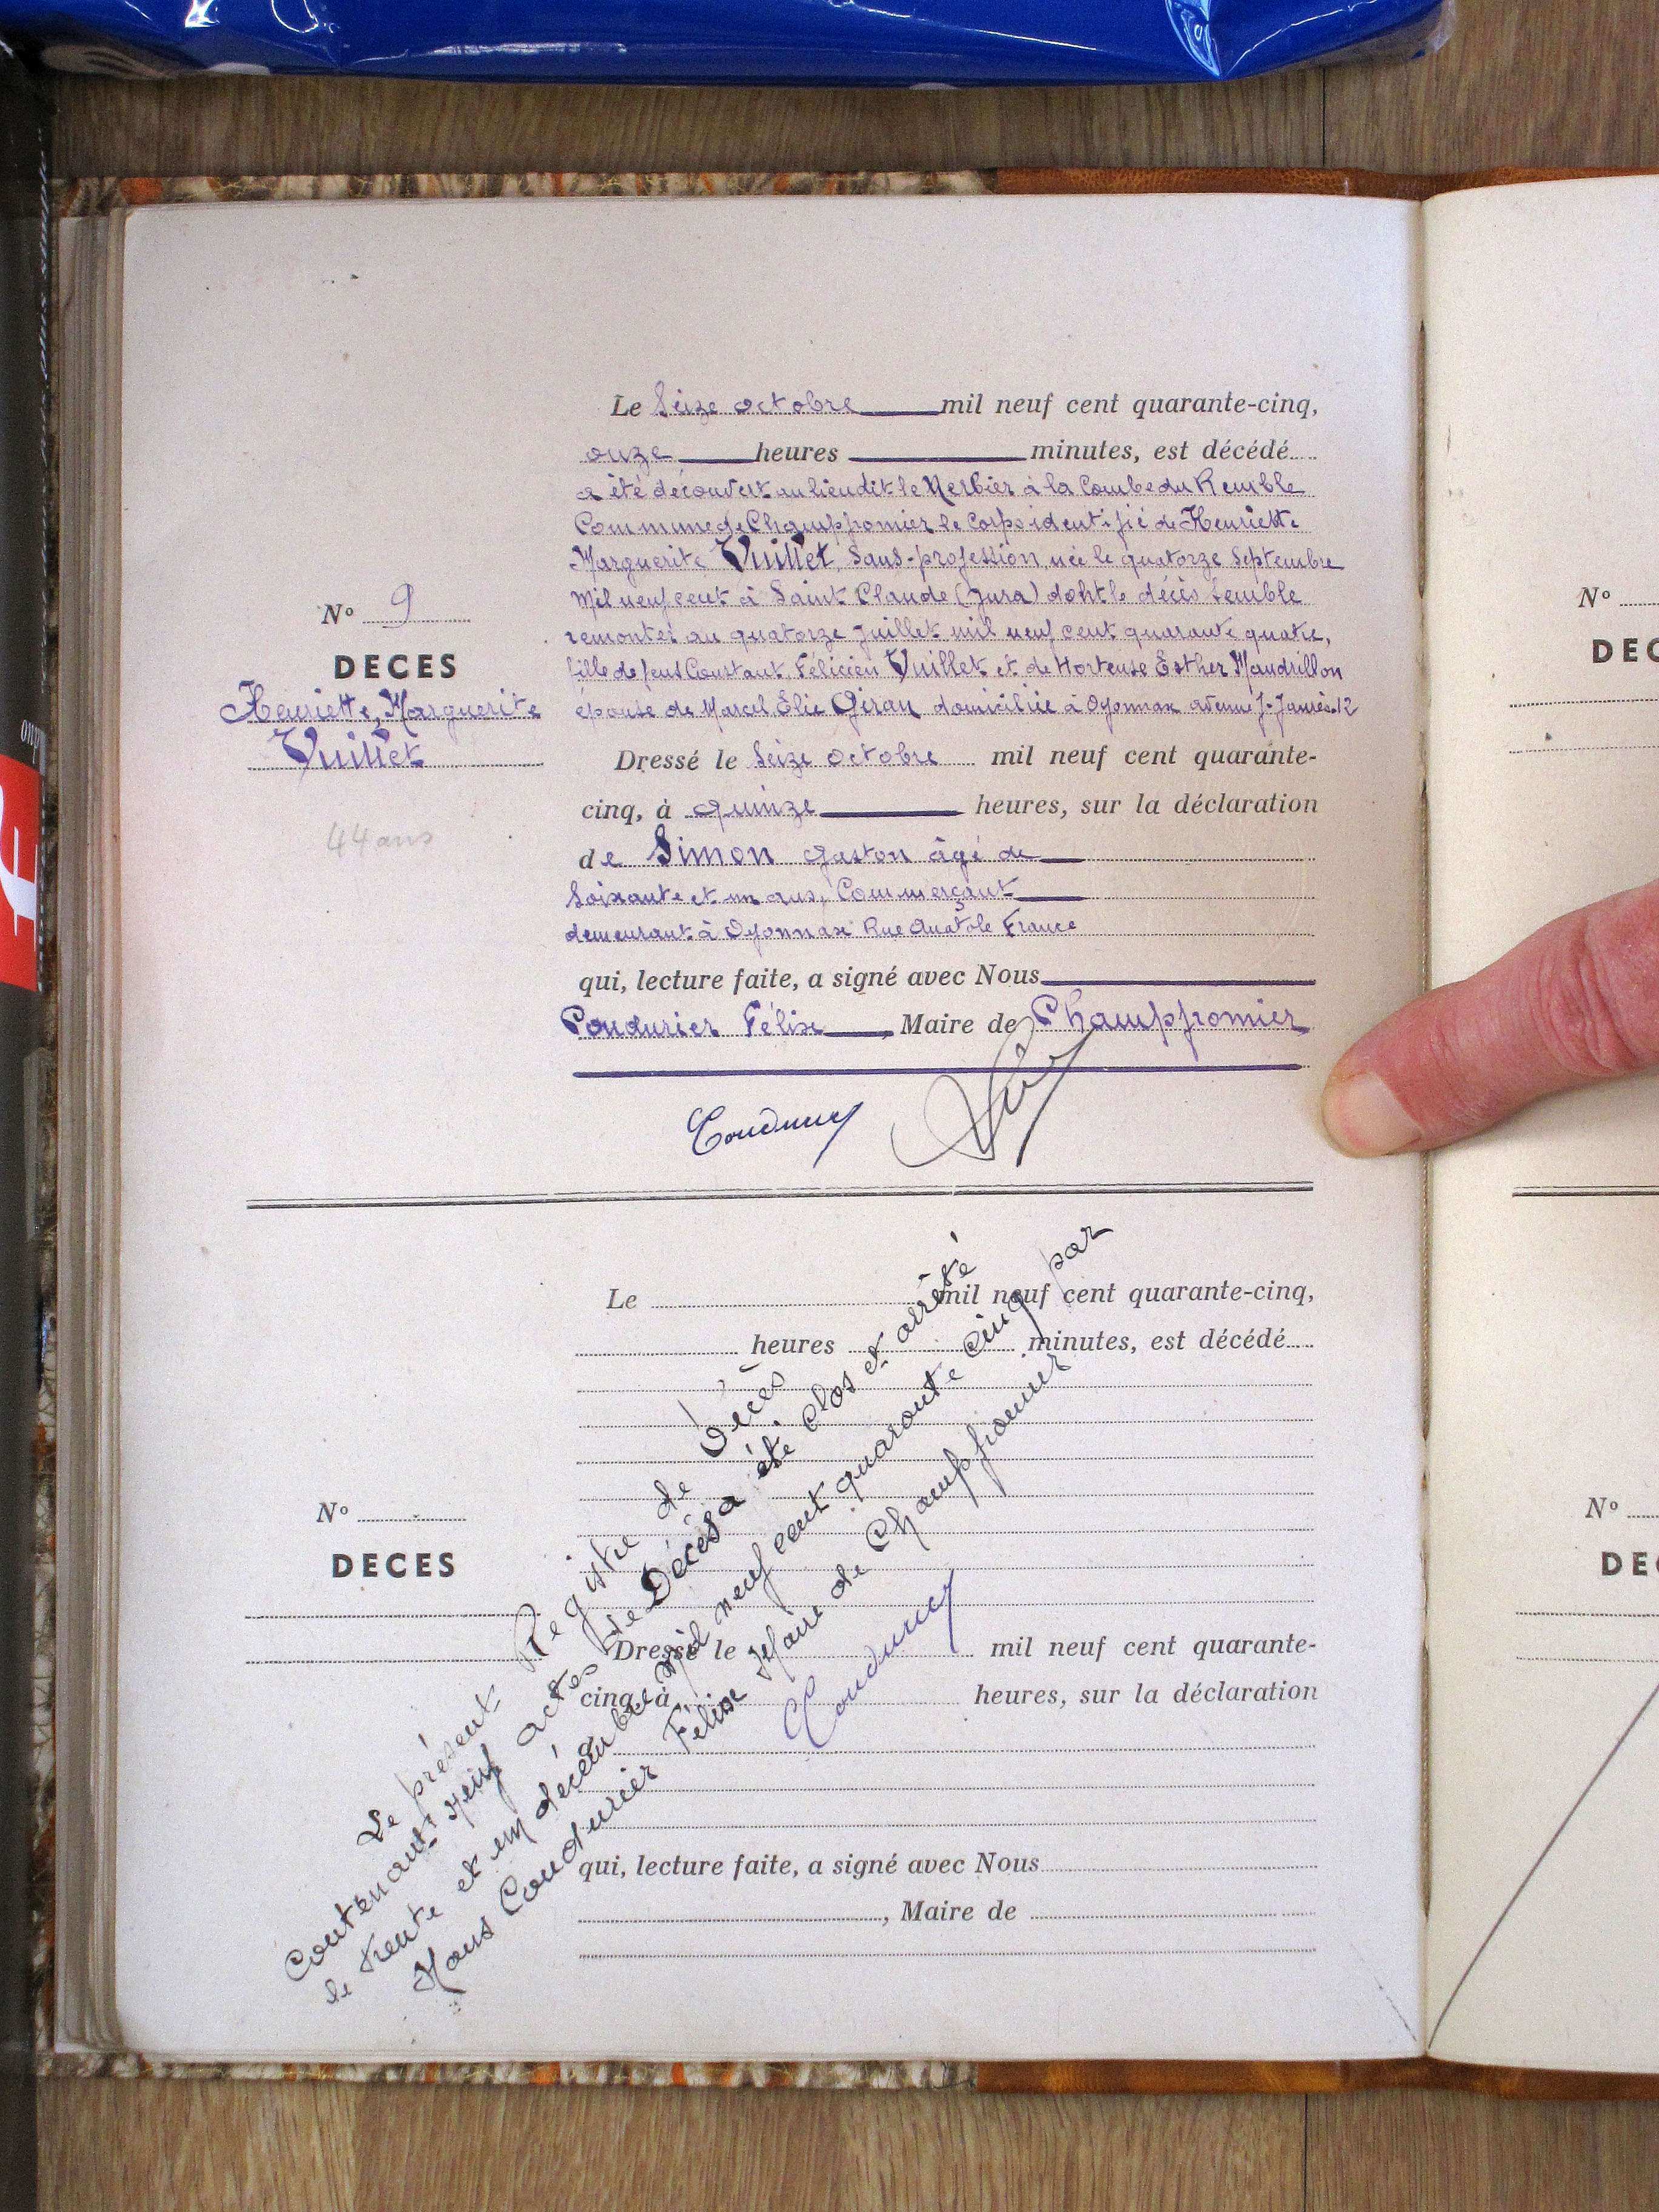 Le Seize octobre mil neuf cent quarante-cinq,
onze heures minutes, est décédé
a été découvert au lieu dit le Nerbier à la Combe du Remble
Commune de Champfromier le Corps identifié de Henriette
Marguerite Vuillet, Sans-profession, née le quatorze Septembre
Mil neuf cent à Saint Claude (Jura) dont le décès semble
remonter au quatorze Juillet mil neuf cent quarante quatre,
fille de feus Constant Félicien Vuillet et de Hortense Esther Mandrillon
épouse de Marcel Elie Giran domiciliée à Oyonnax avenue J. Jaurès 12
N° 9
DECES
Henriette, Marguerite
Vuillet
44 ans
Dressé le Seize octobre mil neuf cent quarante-
cinq, à quinze heures, sur la déclaration
de Simon Gaston âgé de
Soixante et un ans, Commerçant
demeurant à Oyonnax Rue Anatole France
qui, lecture faite, a signé avec Nous
Coudurier Félix, Maire de Champfromier
Coudurier
Le mil neuf cent quarante-cinq,
heures minutes, est décédé
N°
DECES
Dressé le mil neuf cent quarante-
cinq, à heures, sur la déclaration
qui, lecture faite, a signé avec Nous
, Maire de
Le présent Registre de Décès
Contenant neuf actes de Décès a été clos et arrêté
le trente et un décembre Mil neuf cent quarante cinq par
Nous Coudurier Félix Maire de Champfromier
Coudurier
N°
DEC
N°
DEC